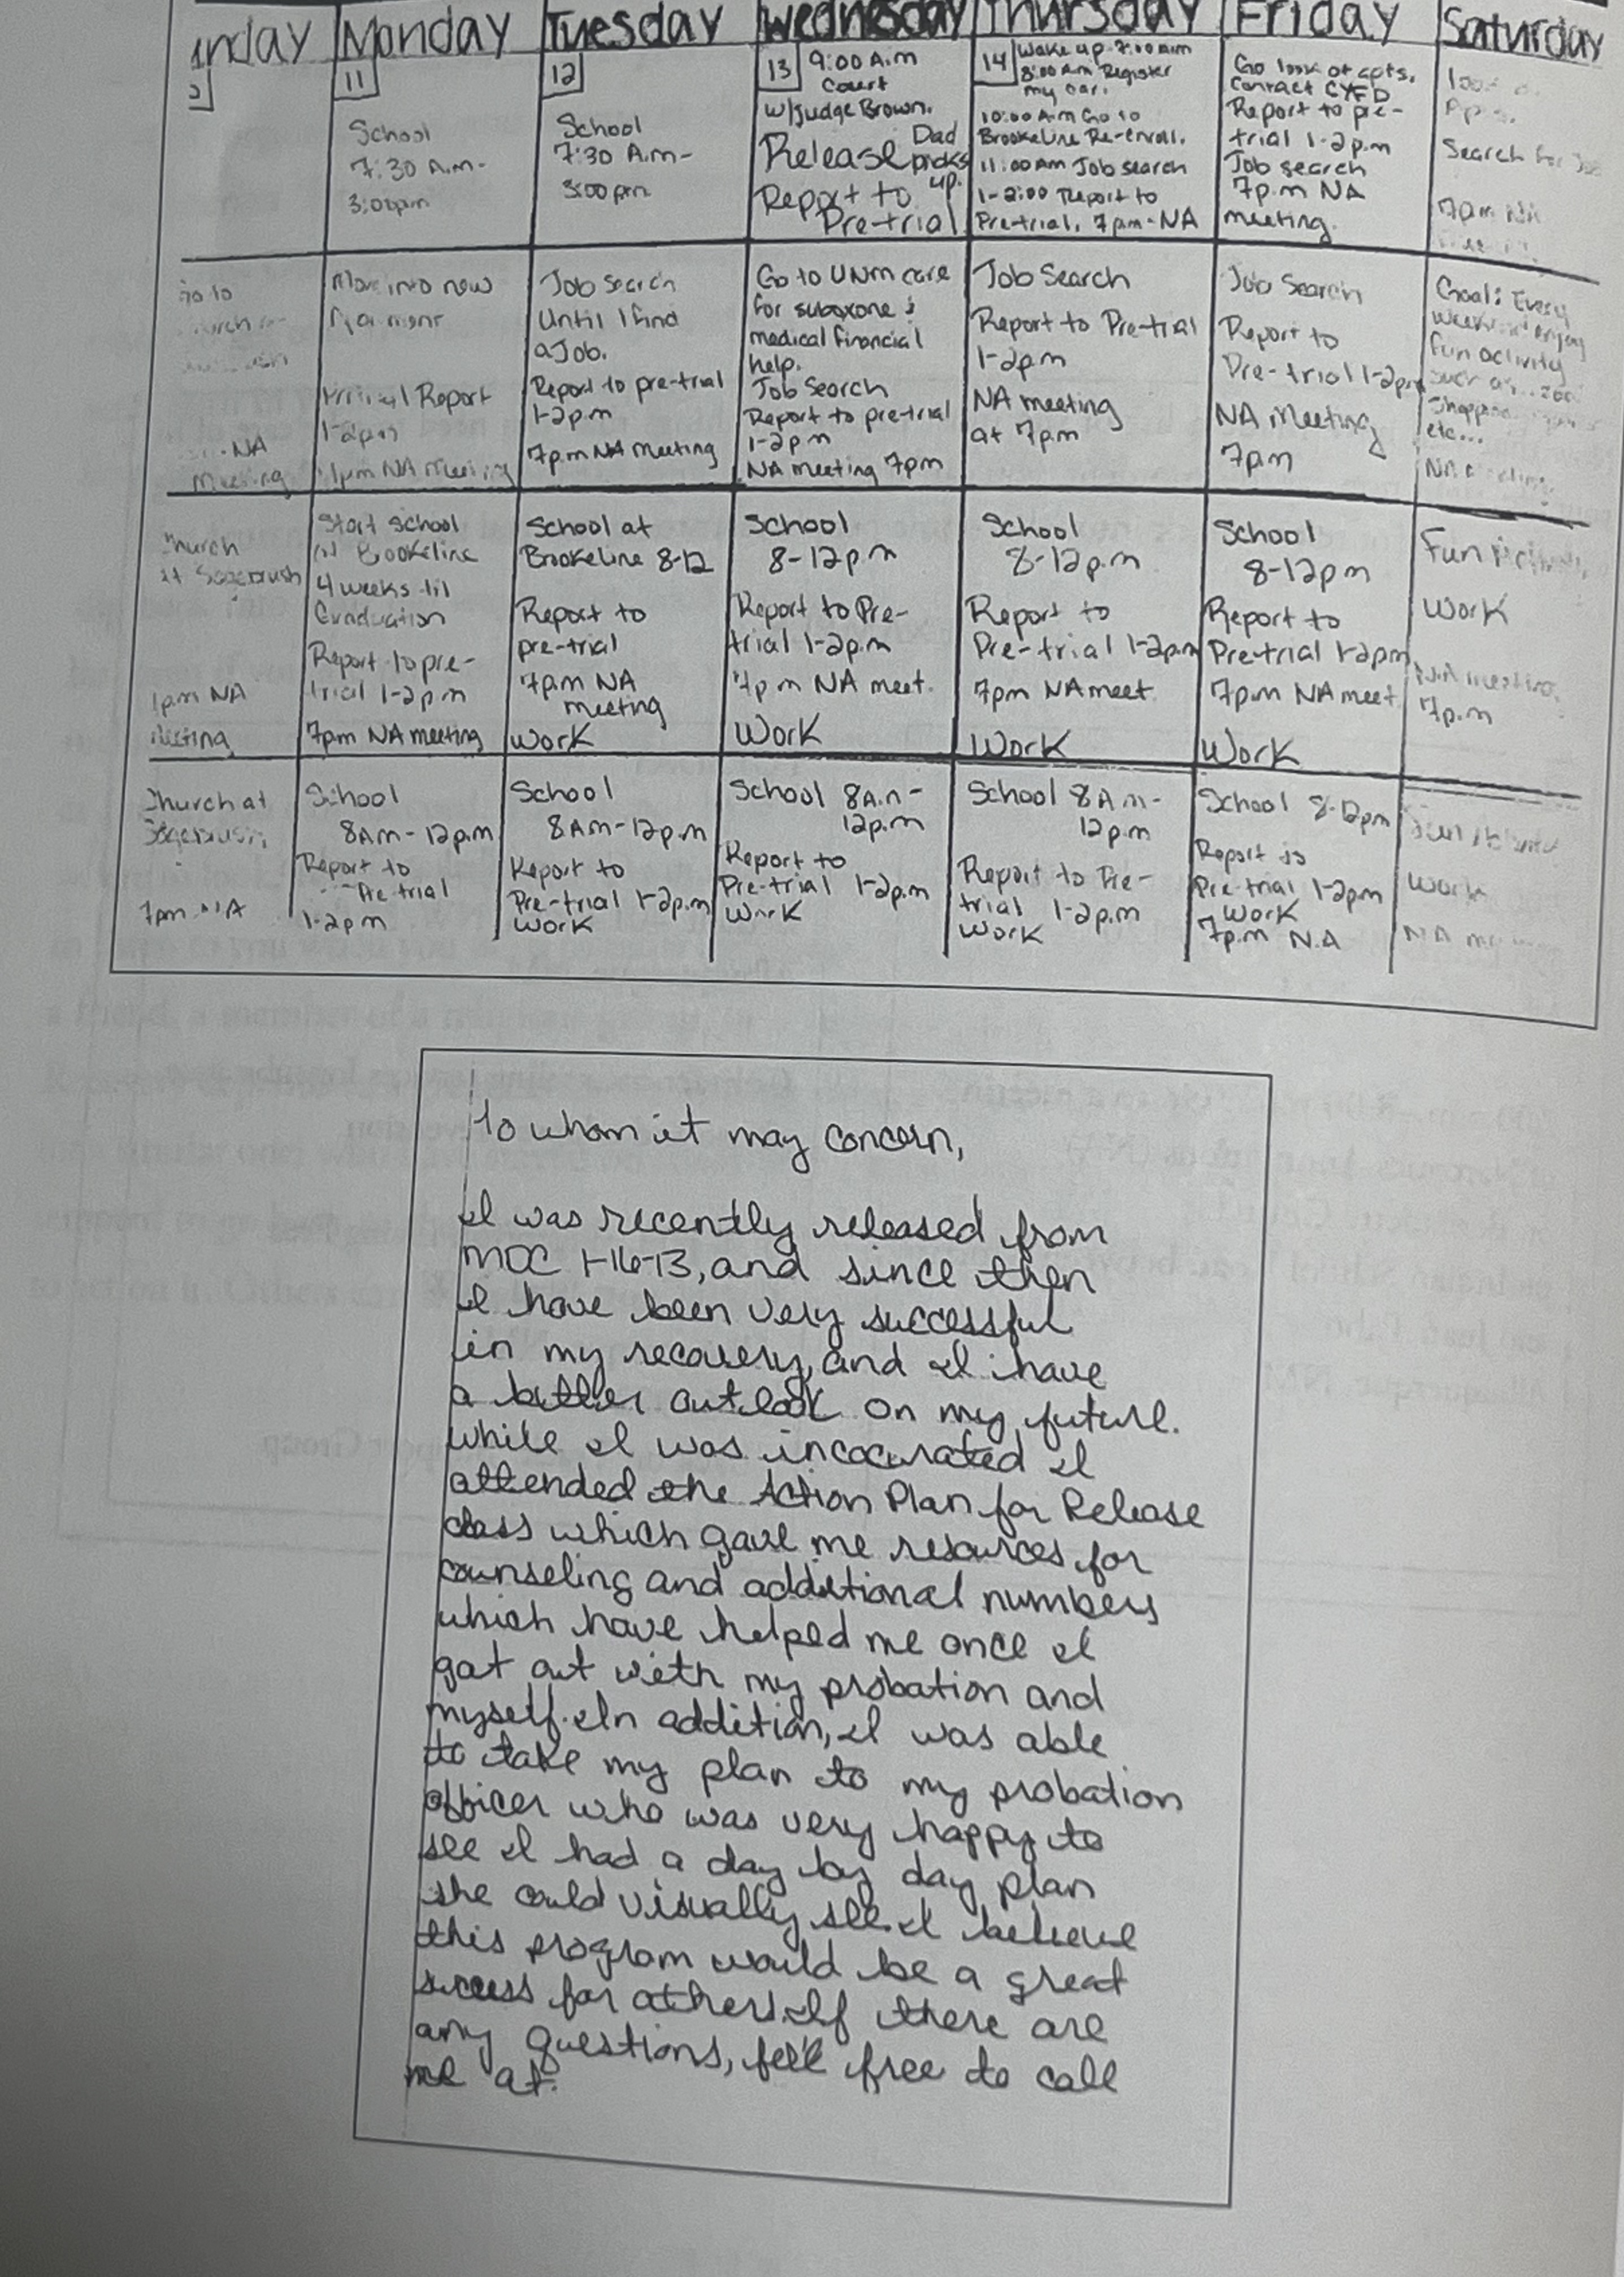 Monday Tuesday Wednesday Thursday Friday Saturday
11
School
7:30 A.m-
3:00pm
12
School
7:30 A.m-
3:00pm
13 9:00 A.m
Court
w/Judge Brown.
Release Dad
picks
up.
Report to
Pre-trial
14 Wake up 7:00 a.m
8:00 A.m Register
my car.
10:00 A.m Go to
Brookeline Re-enroll.
11:00 Am Job search
1-2:00 Report to
Pre-trial. 7pm-NA
Go look at apts.
contact CYFD
Report to pre-
trial 1-2p.m
Job search
7p.m NA
meeting.
Search for Job
7pm NA
Go to
NA
Meeting
Move into new
Report
1-2pm
NA Meeting
Job Search
Until I find
a Job.
Report to pre-trial
1-2pm
7pm NA Meeting
Go to UNM care
for suboxone &
medical financial
help.
Job Search
Report to pre-trial
1-2pm
NA meeting 7pm
Job Search
Report to Pre-trial
1-2pm
NA meeting
at 7pm
Job Search
Report to
Pre-trial 1-2pm
NA Meeting
7pm
Goal: Every
fun activity
such as... zoo
etc...
Church
at Sagebrush
7pm NA
Meeting
Start School
at Brookeline
4 weeks til
Graduation
Report to pre-
trial 1-2pm
7pm NA meeting
School at
Brookeline 8-12
Report to
pre-trial
7pm NA
meeting
Work
School
8-12p.m
Report to Pre-
trial 1-2p.m
7pm NA meet.
Work
School
8-12p.m
Report to
Pre-trial 1-2pm
7pm NA meet.
Work
School
8-12pm
Report to
Pre-trial 1-2pm
7p.m NA meet.
Work
Fun
Work
NA meeting
7p.m
Church at
Sagebrush
7pm NA
School
8Am-12p.m
Report to
Pre-trial
1-2pm
School
8Am-12p.m
Report to
Pre-trial 1-2p.m
Work
School 8A.m-
12p.m
Report to
Pre-trial 1-2p.m
Work
School 8A.m-
12p.m
Report to Pre-
trial 1-2p.m
Work
School 8-12pm
Report to
Pre-trial 1-2pm
Work
7p.m N.A
Work
To whom it may concern,
I was recently released from
MDC 1-16-13, and since then
I have been very successful
in my recovery, and I have
a better outlook on my future.
while I was incocurated I
attended the Action Plan for Release
class which gave me resources for
counseling and additional numbers
which have helped me once I
got out with my probation and
myself. In addition, I was able
to take my plan to my probation
officer who was very happy to
see I had a day by day plan
she could visually see. I believe
this program would be a great
success for others. If there are
any questions, feel free to call
me at.